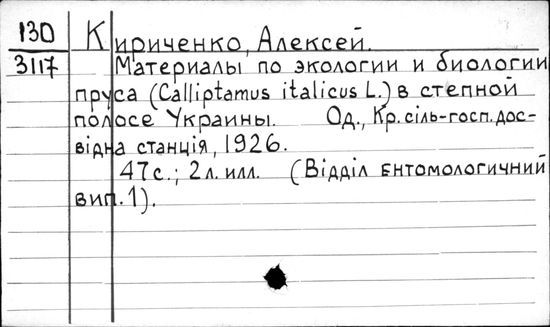 130
3117
Кириченко, Алексей.
Материалы по экологии и биологии
пруса (Calliptamus italicus L.) в степной
полосе Украины. Од., Кр. сіль-госп. дос-
відна станція, 1926.
47 с.; 2 л. илл. (Відділ ентомологичний
вип. 1).